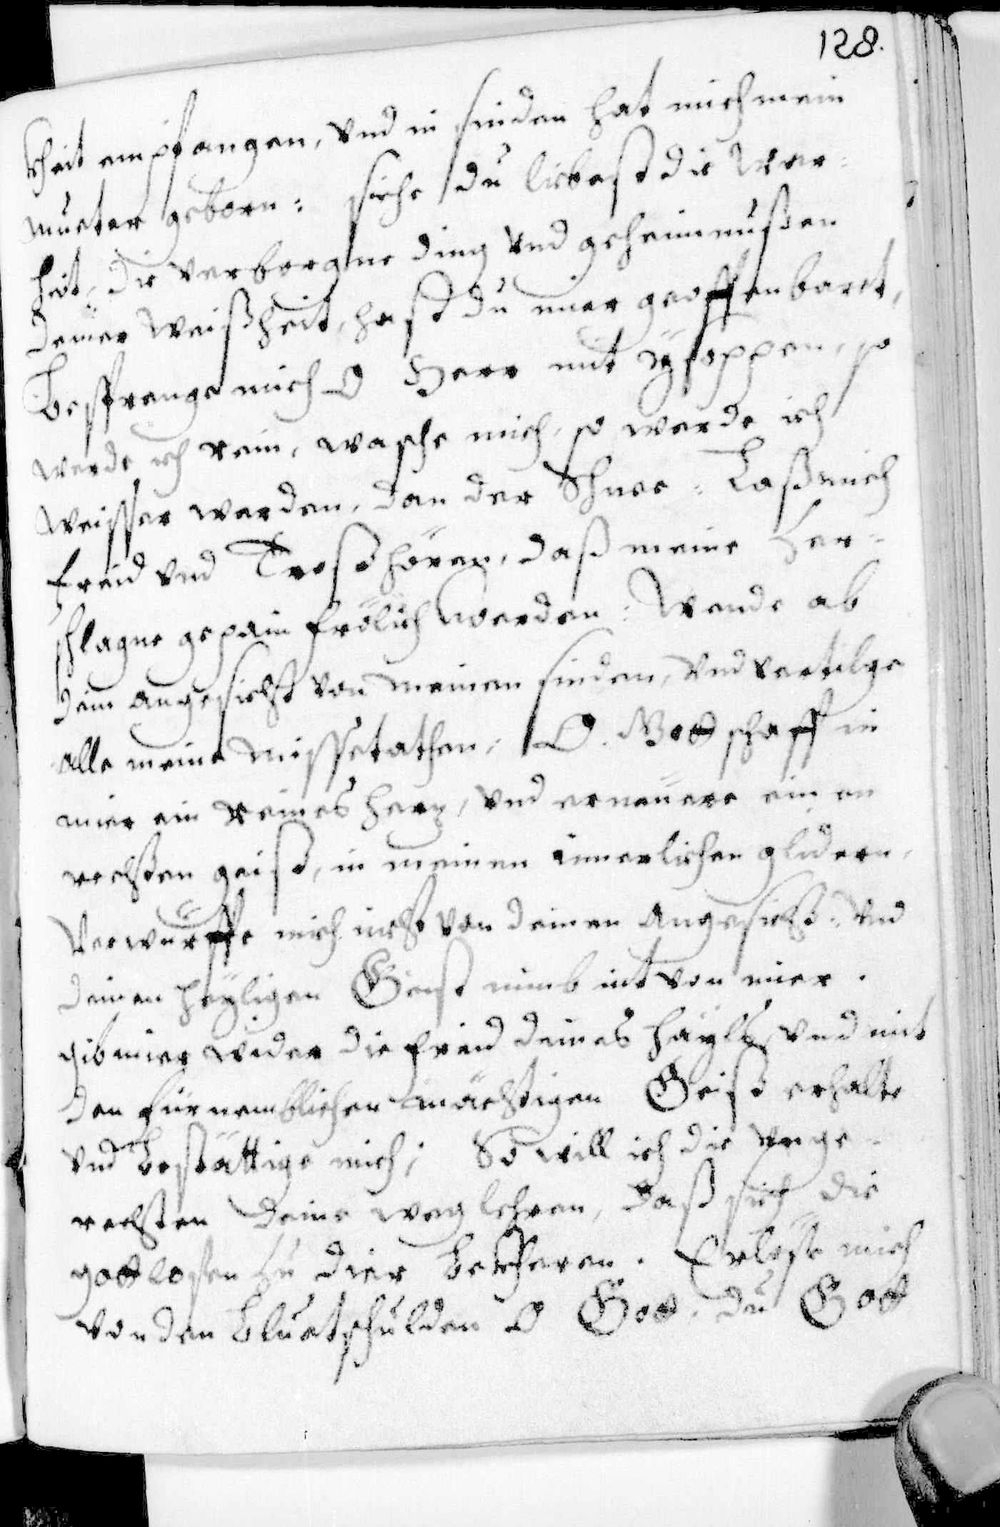 128.
kheit empfangen, Vnd in sinden hat mich mein
muetter geborn: siche du liebest die War-
heit, die verborgne ding Vnd geheimnußen
deiner Weißheit, hast du mier geoffenbaret,
Besprenge mich O Herr mit Ysoppen, so
werde ich rein, wasche mich, so werde ich
weisser werden, dan der Schnee: Laß mich
freid vnd Trost hören, daß meine Zer-
schlagne gepain frölich werden: Wende ab
dein angesicht von meinen sinden, Vnd vertilge
alle meine missetathen, O. Gott schaff in
mier ein reines herz, vnd erneüere ein en
rechten geist, in meinen innerlichen glidern,
Verwürffe mich nicht von deinen angesicht: Vnd
deinen heyligen Geist nimb nit von mier.
gib mier wider die freid deines hayls, vnd mit
den fürnemblichen mächtigen Geist erhalte
vnd bestättige mich; So will ich die vnge-
rechten deine weg lehren, daß sich die
gottlosen zu dier bekheren. Erlöse mich
von den bluetschulden O Gott, du Gott